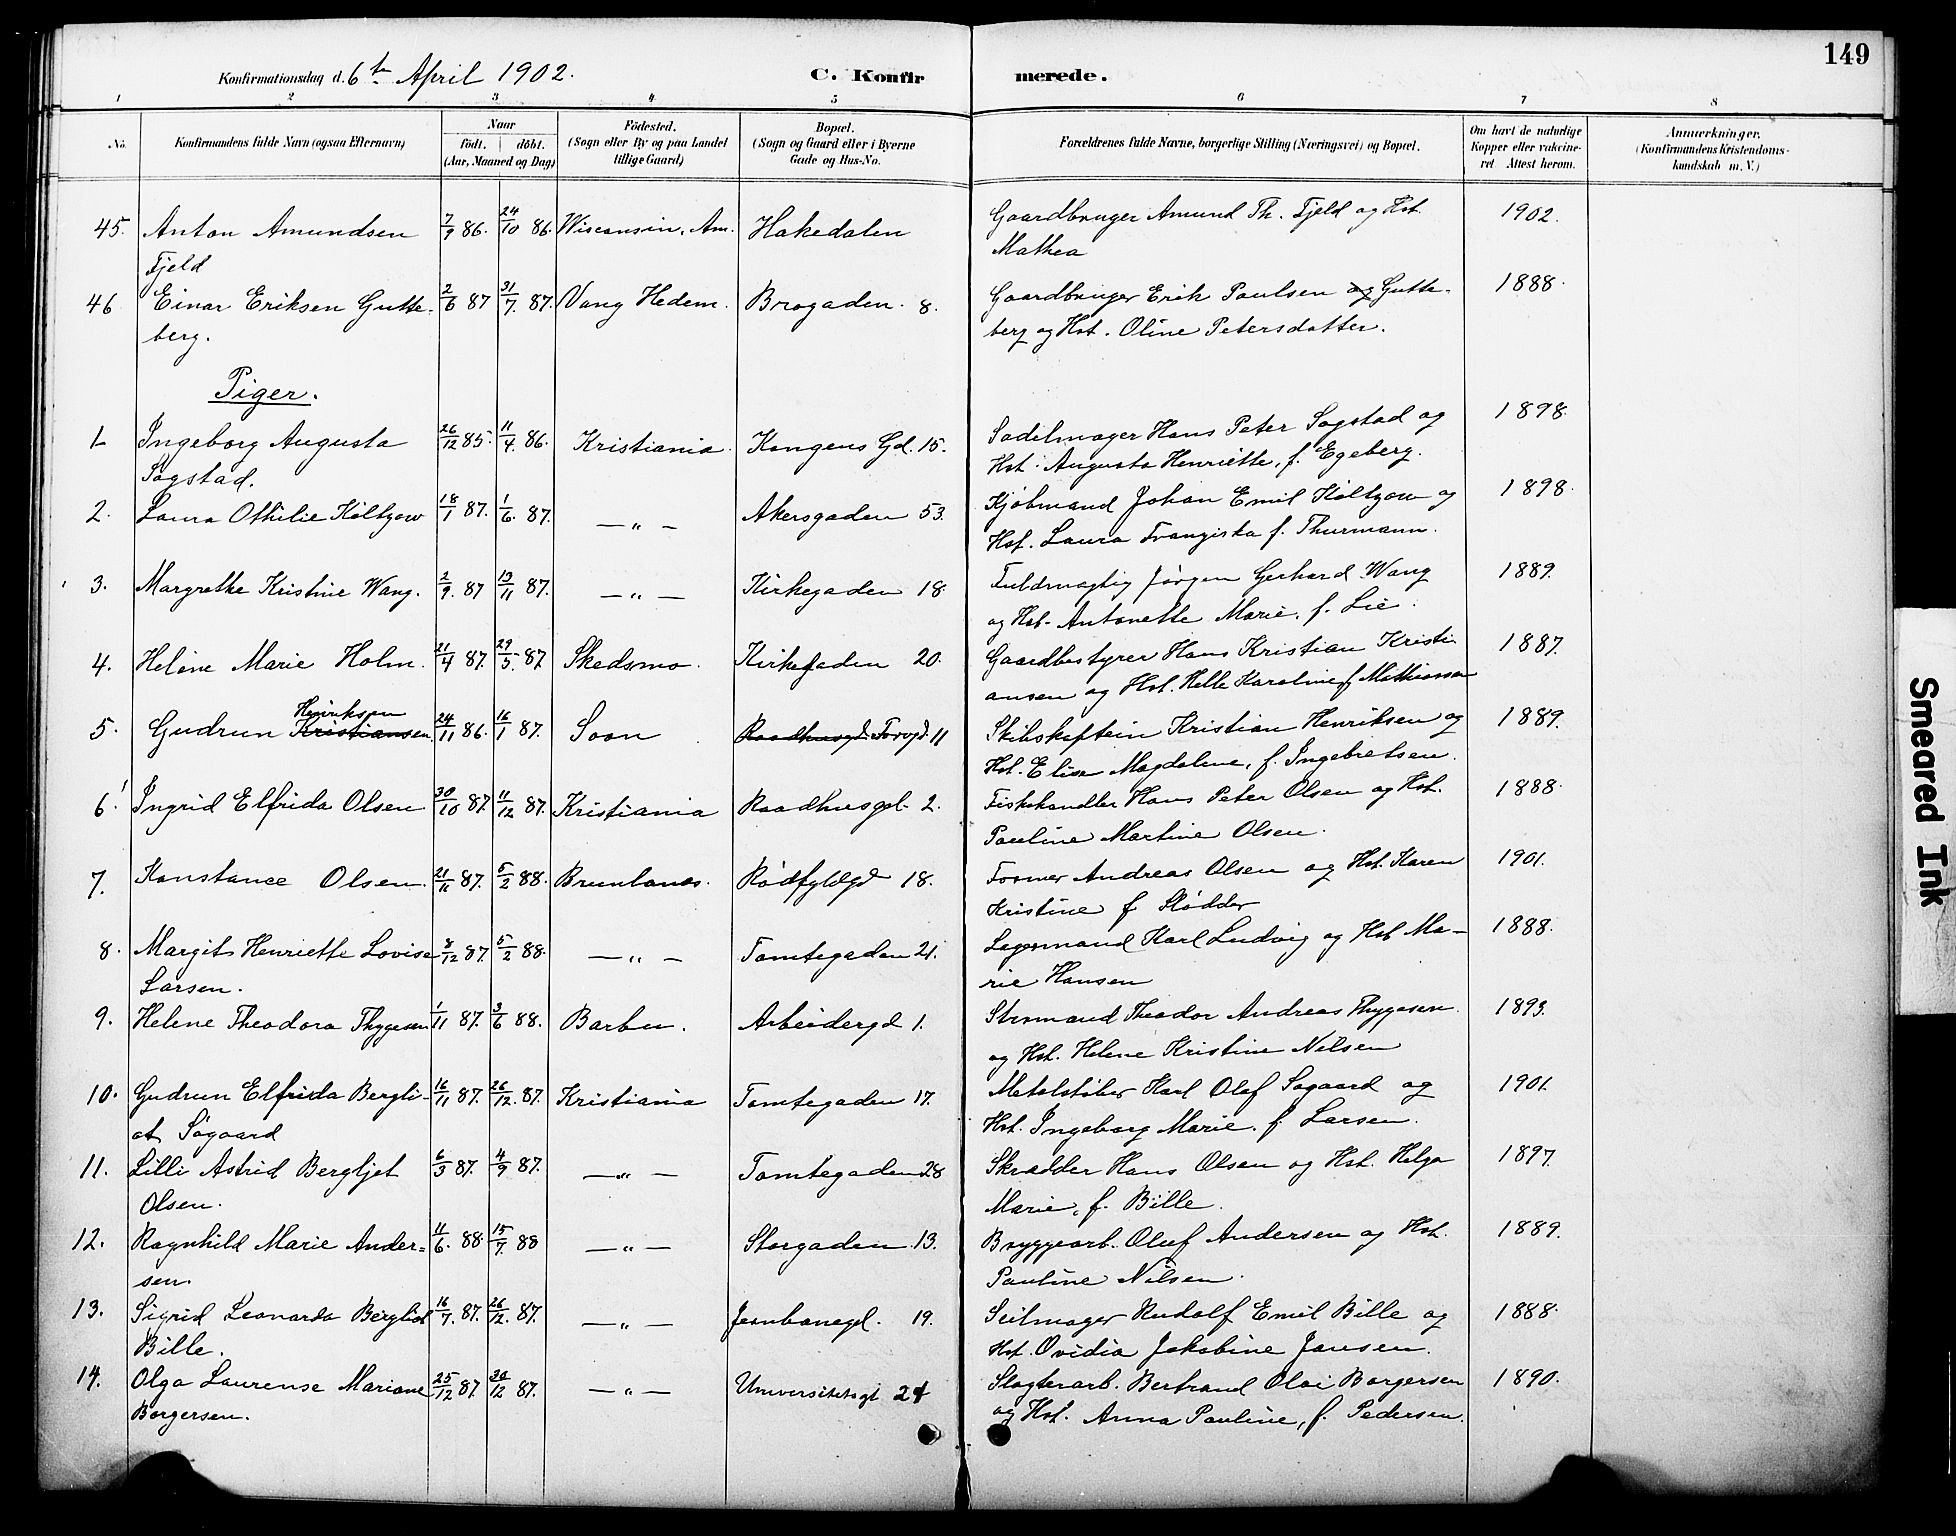 149
Konfirmationsdag d. 6te April 1902.
C. Konfirmerede.
1 2 3 4 5 6 7 8
No. Konfirmandens fulde Navn (ogsaa Efternavn) Naar født. døbt. (Aar, Maaned og Dag) Fødested. (Sogn eller By og paa Landet tillige Gaard) Bopæl. (Sogn og Gaard eller i Byerne Gade og Hus-No. Forældrenes fulde Navne, borgerlige Stilling (Næringsvei) og Bopæl. Om havt de naturlige Kopper eller vakcineret Attest herom. Anmærkninger. (Konfirmandens Kristendomskundskab m. V.)
45. Anton Amundsen 7/9 86. 24/10 86. Wisconsin, Am. Hakedalen Gaardbruger Amund Th. Fjeld og Hst. 1902.
Fjeld Mathea
46 Einar Eriksen Gutte- 2/6 87 31/7. 87. Vang Hedem. Brogaden. 8. Gaardbruger Erik Paulsen og Gutte- 1888.
berg. berg og Hst. Oline Petersdatter.
Piger.
1. Ingeborg Augusta 26/12 85. 11/4. 86. Kristiania. Kongens Gd. 15. Sadelmager Hans Peter Sogstad og 1898.
Sogstad. Hst. Augusta Henriette, f. Egeberg.
2. Laura Othilie Koltzow 18/1 87. 1/6. 87. —„— Akersgaden 53. Kjøbmand Johan Emil Koltzow og 1898.
Hst. Laura Frangista f. Thurmann.
3. Margrethe Kristine Wang. 2/9. 87 13/11 87. —„— Kirkegaden 18. Fuldmægtig Jørgen Gerhard Wang 1889.
og Hst. Antonette Marie, f. Lie.
4. Helene Marie Holm. 21/4 87. 29/5. 87. Skedsmo. Kirkegaden 20. Gaardbestyrer Hans Kristian Kristi- 1887.
ansen og Hst. Helle Karoline f Mathiassen
Henriksen
5. Gudrun Kristiansen. 24/11 86. 16/1 87. Soon Raadhusgd. Torvgd. 11 Skibskaptein Kristian Henriksen og 1889.
Hst. Elise Magdalene, f. Ingebretsen.
6. Ingrid Elfrida Olsen 30/10 87. 11/12 87. Kristiania Raadhusgd. 2. Fiskehandler Hans Peter Olsen og Hst. 1888.
Pauline Martine Olsen.
7. Konstance Olsen. 21/11 87. 5/2 88. Brunlanes. Rødfyldgd 18. Former Andreas Olsen og Hst. Karen 1901.
Kristine f. Slødder
8. Margit Henriette Lovise 8/12 87. 5/2 88. —„— Tomtegaden 21. Lagermand Karl Ludvig og Hst Ma- 1888.
Larsen. rie Hansen
9. Helene Theodora Thygesen 1/11 87. 3/6 88. Barbu. Arbeidergd 1. Styrmand Theodor Andreas Thygesen 1893.
og Hst. Helene Kristine Nilsen
10. Gudrun Elfrida Bergli- 16/11 87. 26/12. 87. Kristiania Tomtegaden 17. Metalstøber Karl Olaf Søgaard og 1901.
ot Søgaard Hst. Ingeborg Marie. f. Larsen.
11. Lilli Astrid Bergljot 6/3 87. 4/9 87. —„— Tomtegaden 28 Skrædder Hans Olsen og Hst. Helga 1897.
Olsen. Marie, f. Bille.
12. Ragnhild Marie Ander- 11/6. 88. 15/7. 88 —„— Storgaden 13. Bryggearb. Oluf Andersen og Hst. 1889.
sen. Pauline Nilsen.
13. Sigrid Leonarda Bergliot 16/7. 87. 26/12. 87. —„— Jernbanegd. 19. Seilmager Rudolf Emil Bille og 1888.
Bille. Hst. Ovidia Jakobine Jansen.
14. Olga Laurense Mariane 25/12 87. 30/12 87. —„— Universitetsgt 24 Slagterarb. Bertrand Olai Borgersen 1890.
Borgersen. og Hst. Anna Pauline, f. Pedersen.
Smeared Ink